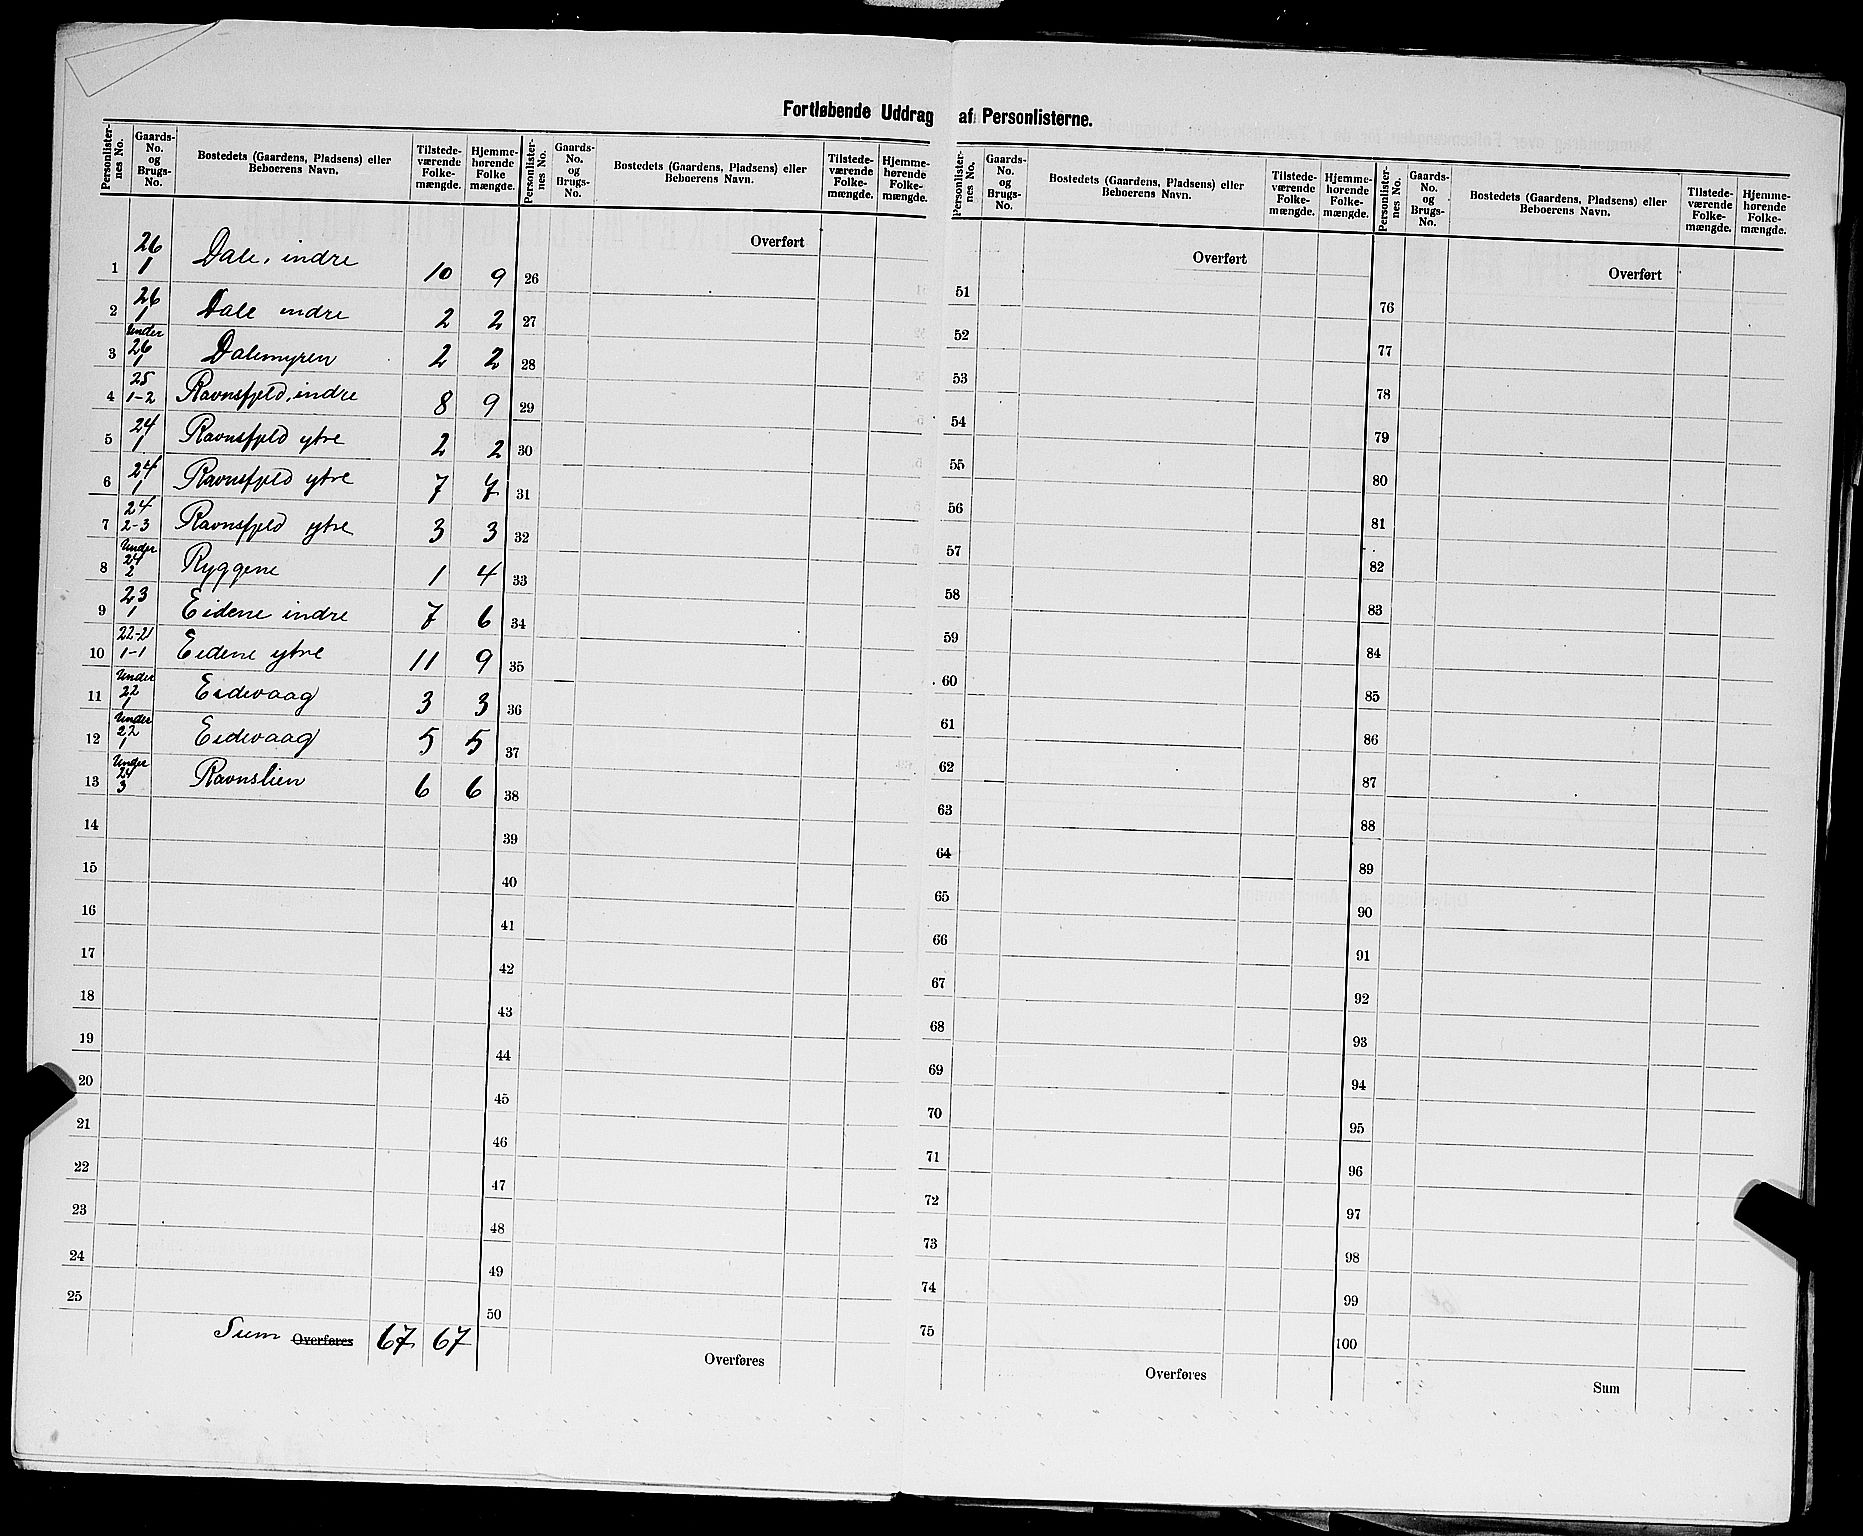 Fortløbende Uddrag af Personlisterne.
Personlister-nes No. | Gaards-No. og Brugs-No. | Bostedets (Gaardens, Pladsens) eller Beboerens Navn. | Tilstede-værende Folke-mængde. | Hjemme-hørende Folke mængde.
1 | 26 1 | Dale, indre | 10 | 9
2 | 26 1 | Dale indre | 2 | 2
3 | Under 26 1 | Dalemyren | 2 | 2
4 | 25 1-2 | Ravnsfjeld, indre | 8 | 9
5 | 24 1 | Ravnsfjeld ytre | 2 | 2
6 | 24 1 | Ravnsfjeld ytre | 7 | 7
7 | 24 2-3 | Ravnsfjeld ytre | 3 | 3
8 | Under 24 2 | Ryggene | 1 | 4
9 | 23 1 | Eidene indre | 7 | 6
10 | 22-21 1-1 | Eidene ytre | 11 | 9
11 | Under 22 1 | Eidevaag | 3 | 3
12 | Under 22 1 | Eidevaag | 5 | 5
13 | Under 24 3 | Ravnslien | 6 | 6
14
15
16
17
18
19
20
21
22
23
24
25
Sum Overføres | 67 | 67
Personlister-nes No. | Gaards-No. og Brugs-No. | Bostedets (Gaardens, Pladsens) eller Beboerens Navn. | Tilstede-værende Folke-mængde. | Hjemme-hørende Folke-mængde.
Overført
26
27
28
29
30
31
32
33
34
35
36
37
38
39
40
41
42
43
44
45
46
47
48
49
50
Overføres
Personlister-nes No. | Gaards-No. og Brugs-No. | Bostedets (Gaardens, Pladsens) eller Beboerens Navn. | Tilstede-værende Folke-mængde. | Hjemme-hørende Folke-mængde.
Overført
51
52
53
54
55
56
57
58
59
60
61
62
63
64
65
66
67
68
69
70
71
72
73
74
75
Overføres
Personlister-nes No. | Gaards-No. og Brugs-No. | Bostedets (Gaardens, Pladsens) eller Beboerens Navn. | Tilstede-værende Folke-mængde. | Hjemme-hørende Folke-mængde.
Overført
76
77
78
79
80
81
82
83
84
85
86
87
88
89
90
91
92
93
94
95
96
97
98
99
100
Sum